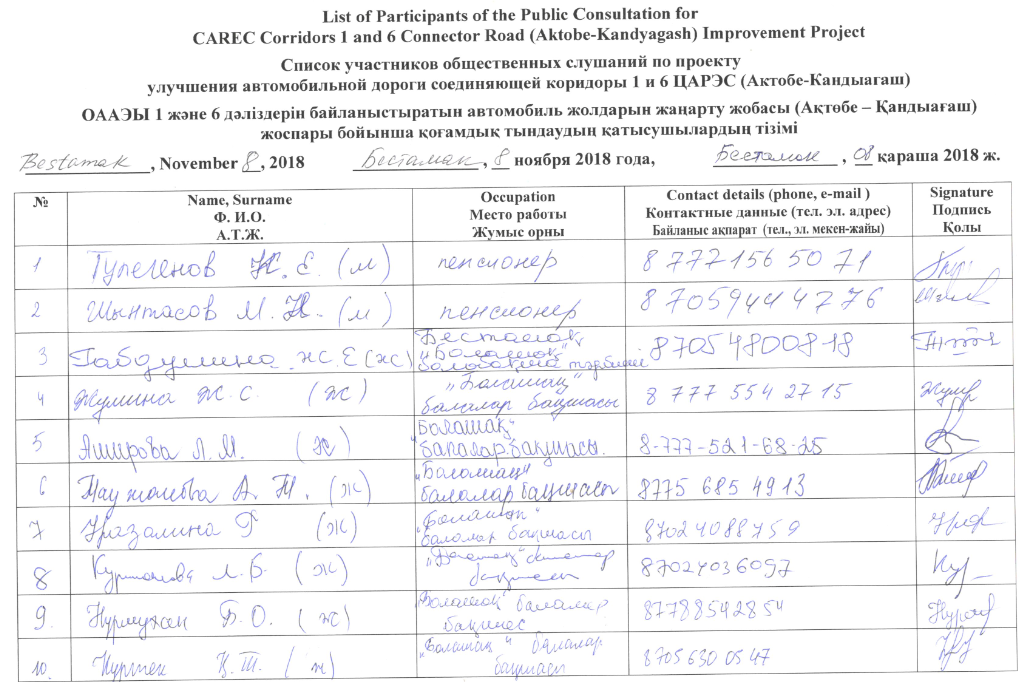 List of Participants of the Public Consultation for
CAREC Corridors 1 and 6 Connector Road (Aktobe-Kandyagash) Improvement Project
Список участников общественных слушаний по проекту
улучшения автомобильной дороги соединяющей коридоры 1 и 6 ЦАРЭС (Актобе-Кандыагаш)
ОААЭЫ 1 және 6 дәліздерін байланыстыратын автомобиль жолдарын жаңарту жобасы (Ақтөбе – Қандыағаш)
жоспары бойынша қоғамдық тындаудың қатысушылардың тізімі
Bestamak, November 8, 2018 Бестамак, 8 ноября 2018 года, Бестамак, 08 қараша 2018 ж.
№ Name, Surname Occupation Contact details (phone, e-mail ) Signature
Ф. И.О. Место работы Контактные данные (тел. эл. адрес) Подпись
А.Т.Ж. Жумыс орны Байланыс ақпарат (тел., эл. мекен-жайы) Қолы
1 Тулегенов Ж. Е. (м) пенсионер 8 777 156 50 71
2 Шынтасов М. Н. (м) пенсионер 8 705 944 42 76
3 Габдулина Ж. Е (ж) Бестамақ "Болашақ" 8705 4800818
4 Жумина Ж. С. (ж) "Болашақ" балалар бақшасы 8 777 554 27 15
5 Аширова Л. М. (ж) "Болашақ" балалар бақшасы. 8-777-521-68-25
6 А. Т. (ж) "Болашақ" балалар бақшасы 8775 685 4913
7 Уразалина Г (ж) "Болашақ" балалар бақшасы 87024088759
8 Л. Б. (ж) бақшасы 87024036097
9. Нурмухан Б. О. (ж) Болашақ балалар 87788542854
10. Қ. Т. (ж) "Болашақ" балалар бақшасы 8705 630 05 47